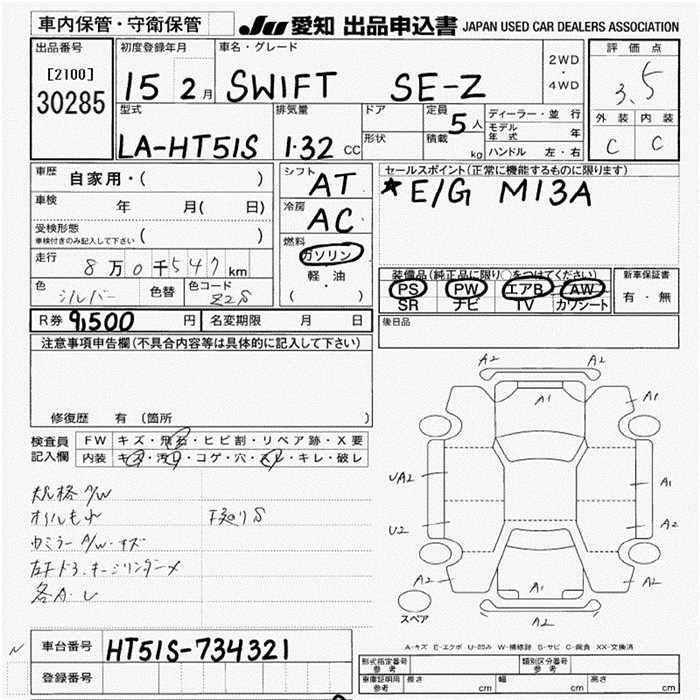 車内保管・守衛保管
JU 愛知 出品申込書 JAPAN USED CAR DEALERS ASSOCIATION
出品番号
[2100]
30285
初度登録年月
15 2月
車名・グレード
SWIFT SE-Z
2WD
・
4WD
評価点
3.5
外装 内装
C C
型式
LA-HT51S
排気量
1.32 CC
ドア
形状
定員
5人
積載
kg
ディーラー・並行
モデル年式 年
ハンドル 左・右
車歴 自家用・( )
車検 年 月( 日)
受検形態
車検付きのみ記入して下さい ( )
走行 8万0千547km
色 シルバー 色替 色コード Z2S
シフト
AT
冷房
AC
燃料
ガソリン
・
軽・油
( )
セールスポイント(正常に機能するものに限ります)
★E/G M13A
装備品(純正品に限り○をつけてください)
PS PW エアB AW
SR ナビ TV カワシート
新車保証書
有・無
後日品
R券 9,500円 名変期限 月 日
注意事項申告欄(不具合内容等は具体的に記入して下さい)
修復歴 有(箇所 )
検査員
記入欄
FW キズ・飛石・ヒビ割・リペア跡・X要
内装 キズ・汚れ・コゲ・穴・スレ・キレ・破レ
規格A/W
下廻りS
各A.U
A2 A2
A1 A1
UA2 A1
U2 A2
A2 A1 A2
A2
スペア
A-キズ E-エクボ U-凹み W-補修跡 S-サビ C-腐食 XX-交換済
N
車台番号 HT51S-734321
登録番号
形式指定番号
参考
類別区分番号
参考
車庫証明用
参考
長さ cm 幅 cm 高さ cm